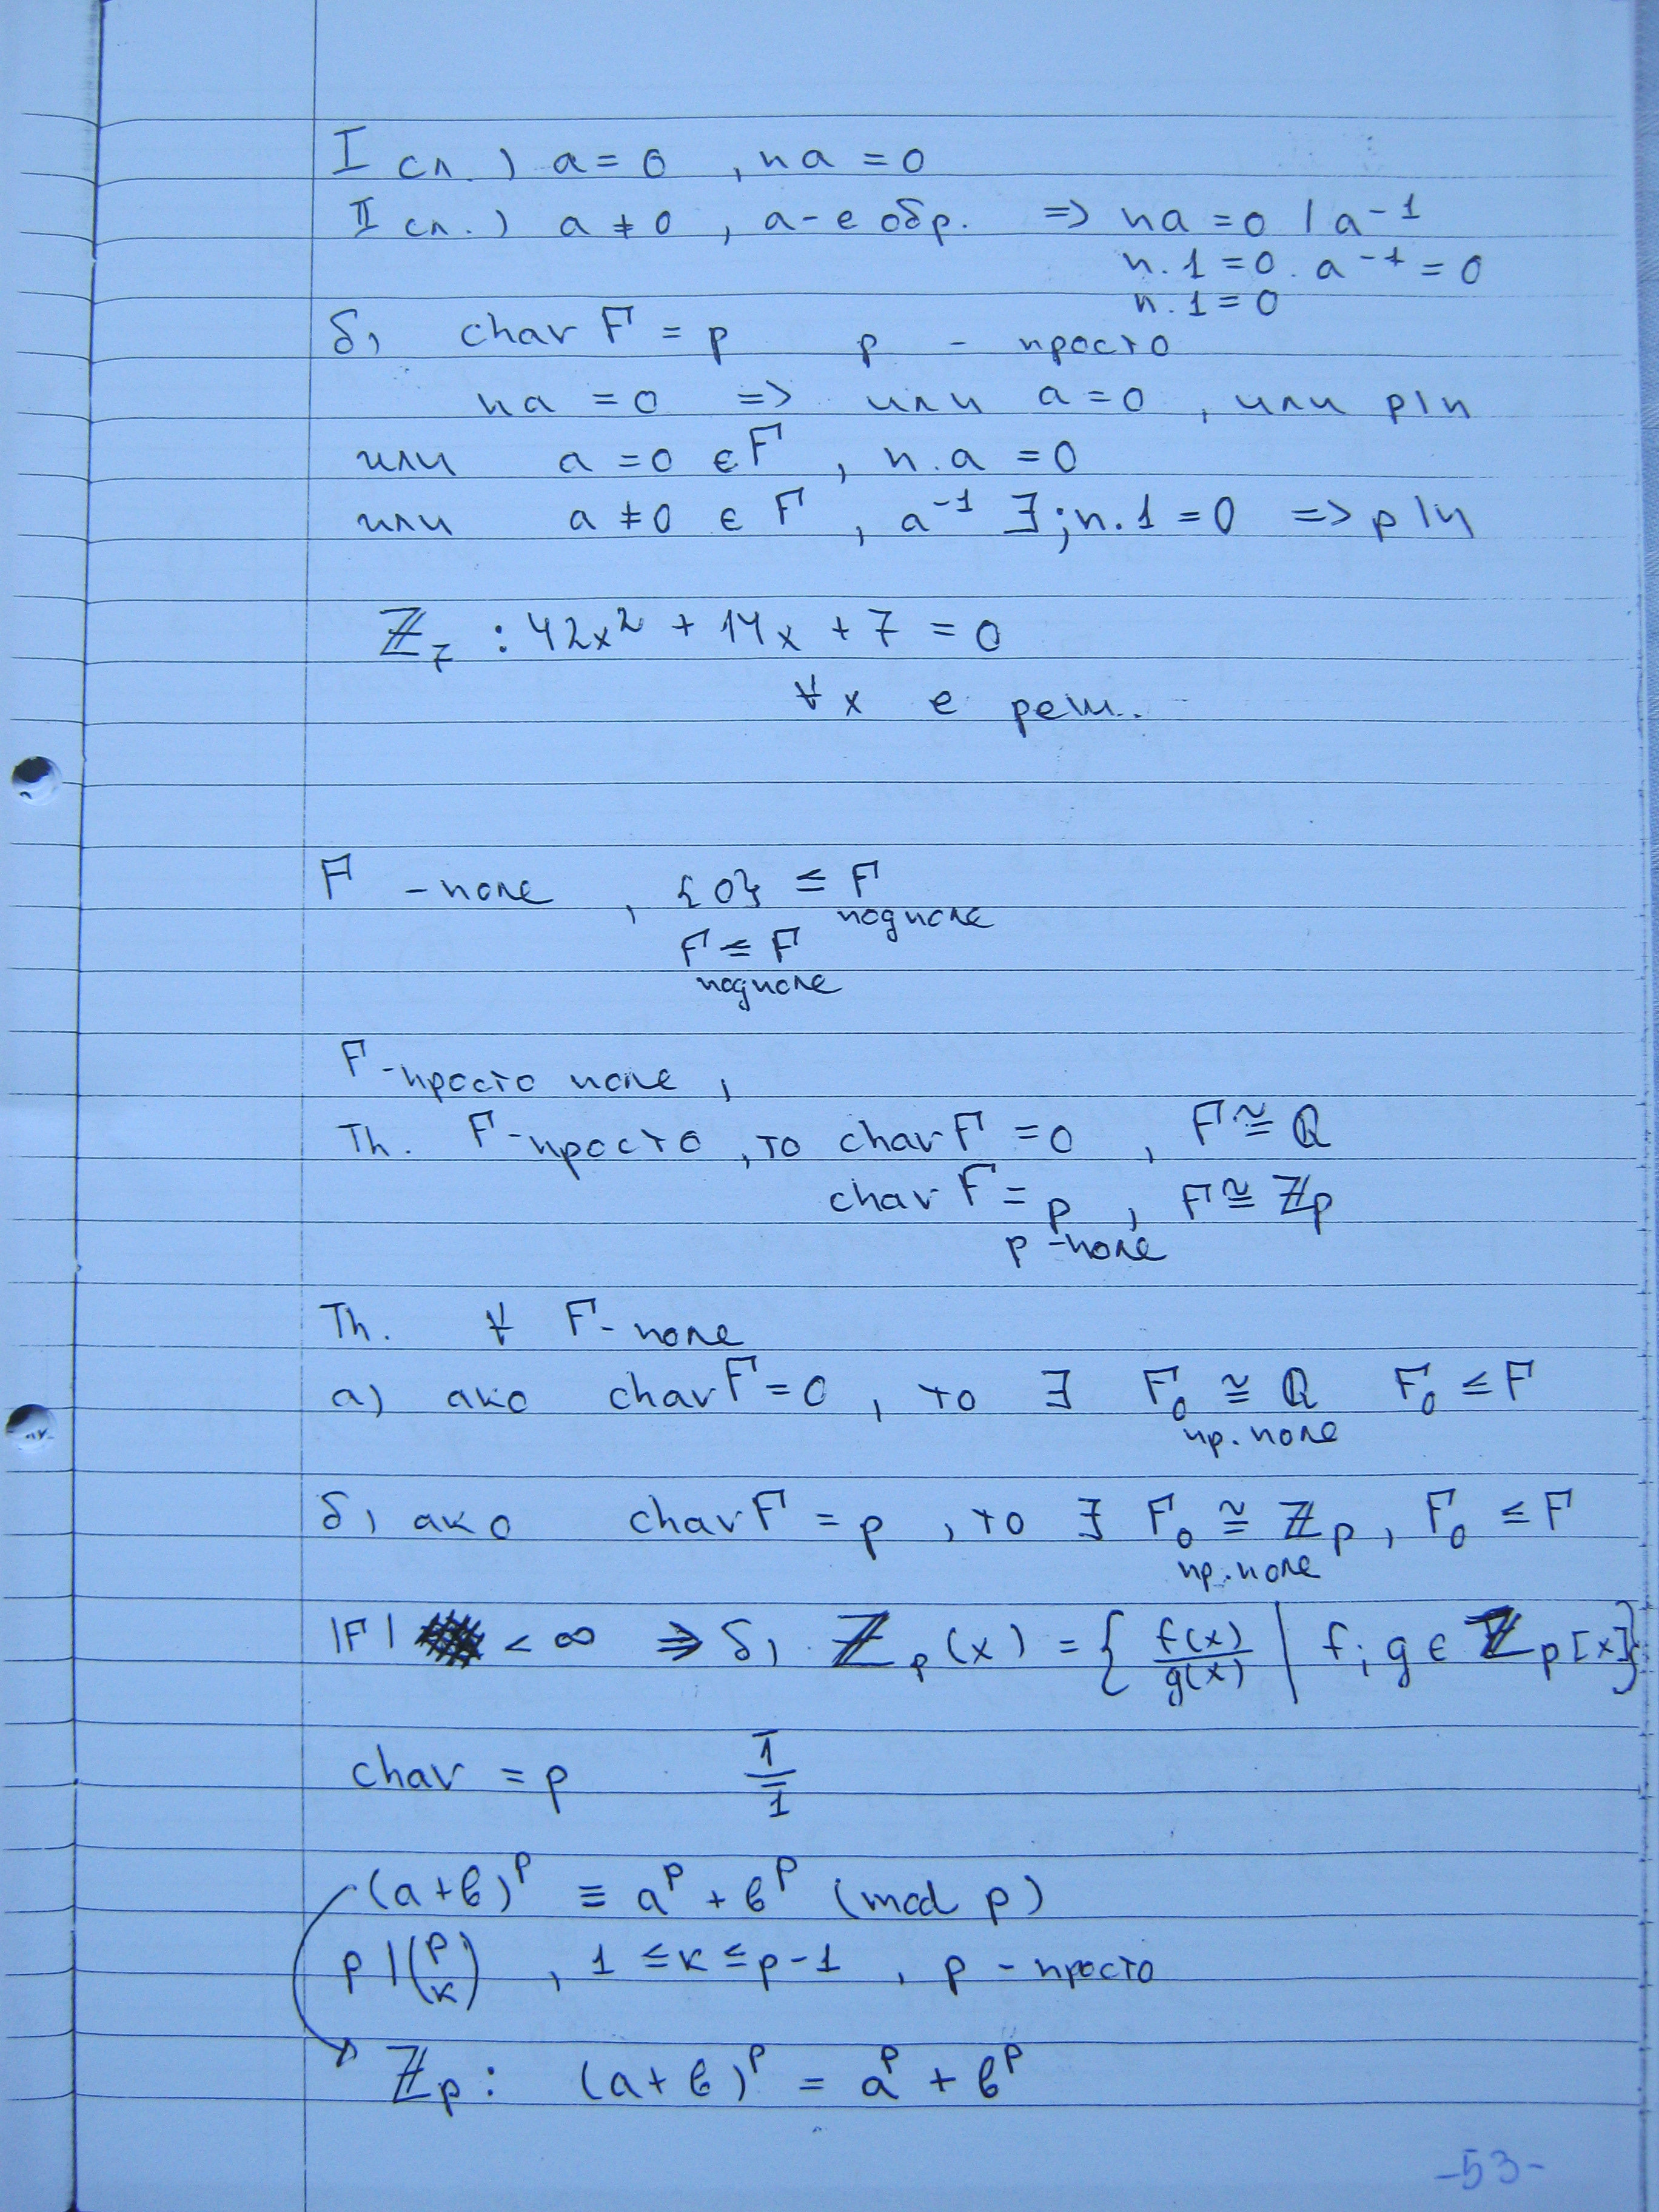 I сл.) a = 0 , na = 0
II сл.) a ≠ 0 , a - е обр. => na = 0 | a⁻¹
n.1 = 0 . a⁻¹ = 0
n.1 = 0
б) char F = p p - просто
na = 0 => или a = 0 , или p|n
или a = 0 ∈ F , n.a = 0
или a ≠ 0 ∈ F , a⁻¹ ∃ ; n.1 = 0 => p|n
ℤ₇ : 42x² + 14x + 7 = 0
∀ x е реш.
F - поле , {0} ≤ F
подполе
F ≤ F
подполе
F - просто поле ,
Th. F - просто , то char F = 0 , F ≅ ℚ
char F = p , F ≅ ℤp
p - поле
Th. ∀ F - поле
а) ако char F = 0 , то ∃ F₀ ≅ ℚ F₀ ≤ F
пр. поле
б) ако char F = p , то ∃ F₀ ≅ ℤp , F₀ ≤ F
пр. поле
|F| < ∞ => б) ℤp(x) = { f(x)/g(x) | f, g ∈ ℤp[x] }
char = p 1̄/1̄
(a+в)ᵖ ≡ aᵖ + вᵖ (mod p)
p | (p к) , 1 ≤ к ≤ p-1 , p - просто
ℤp : (a+в)ᵖ = aᵖ + вᵖ
-53-